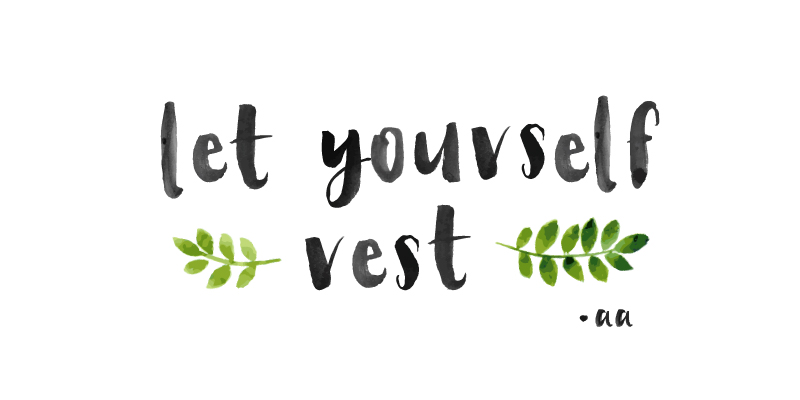 let yourself
rest
•aa